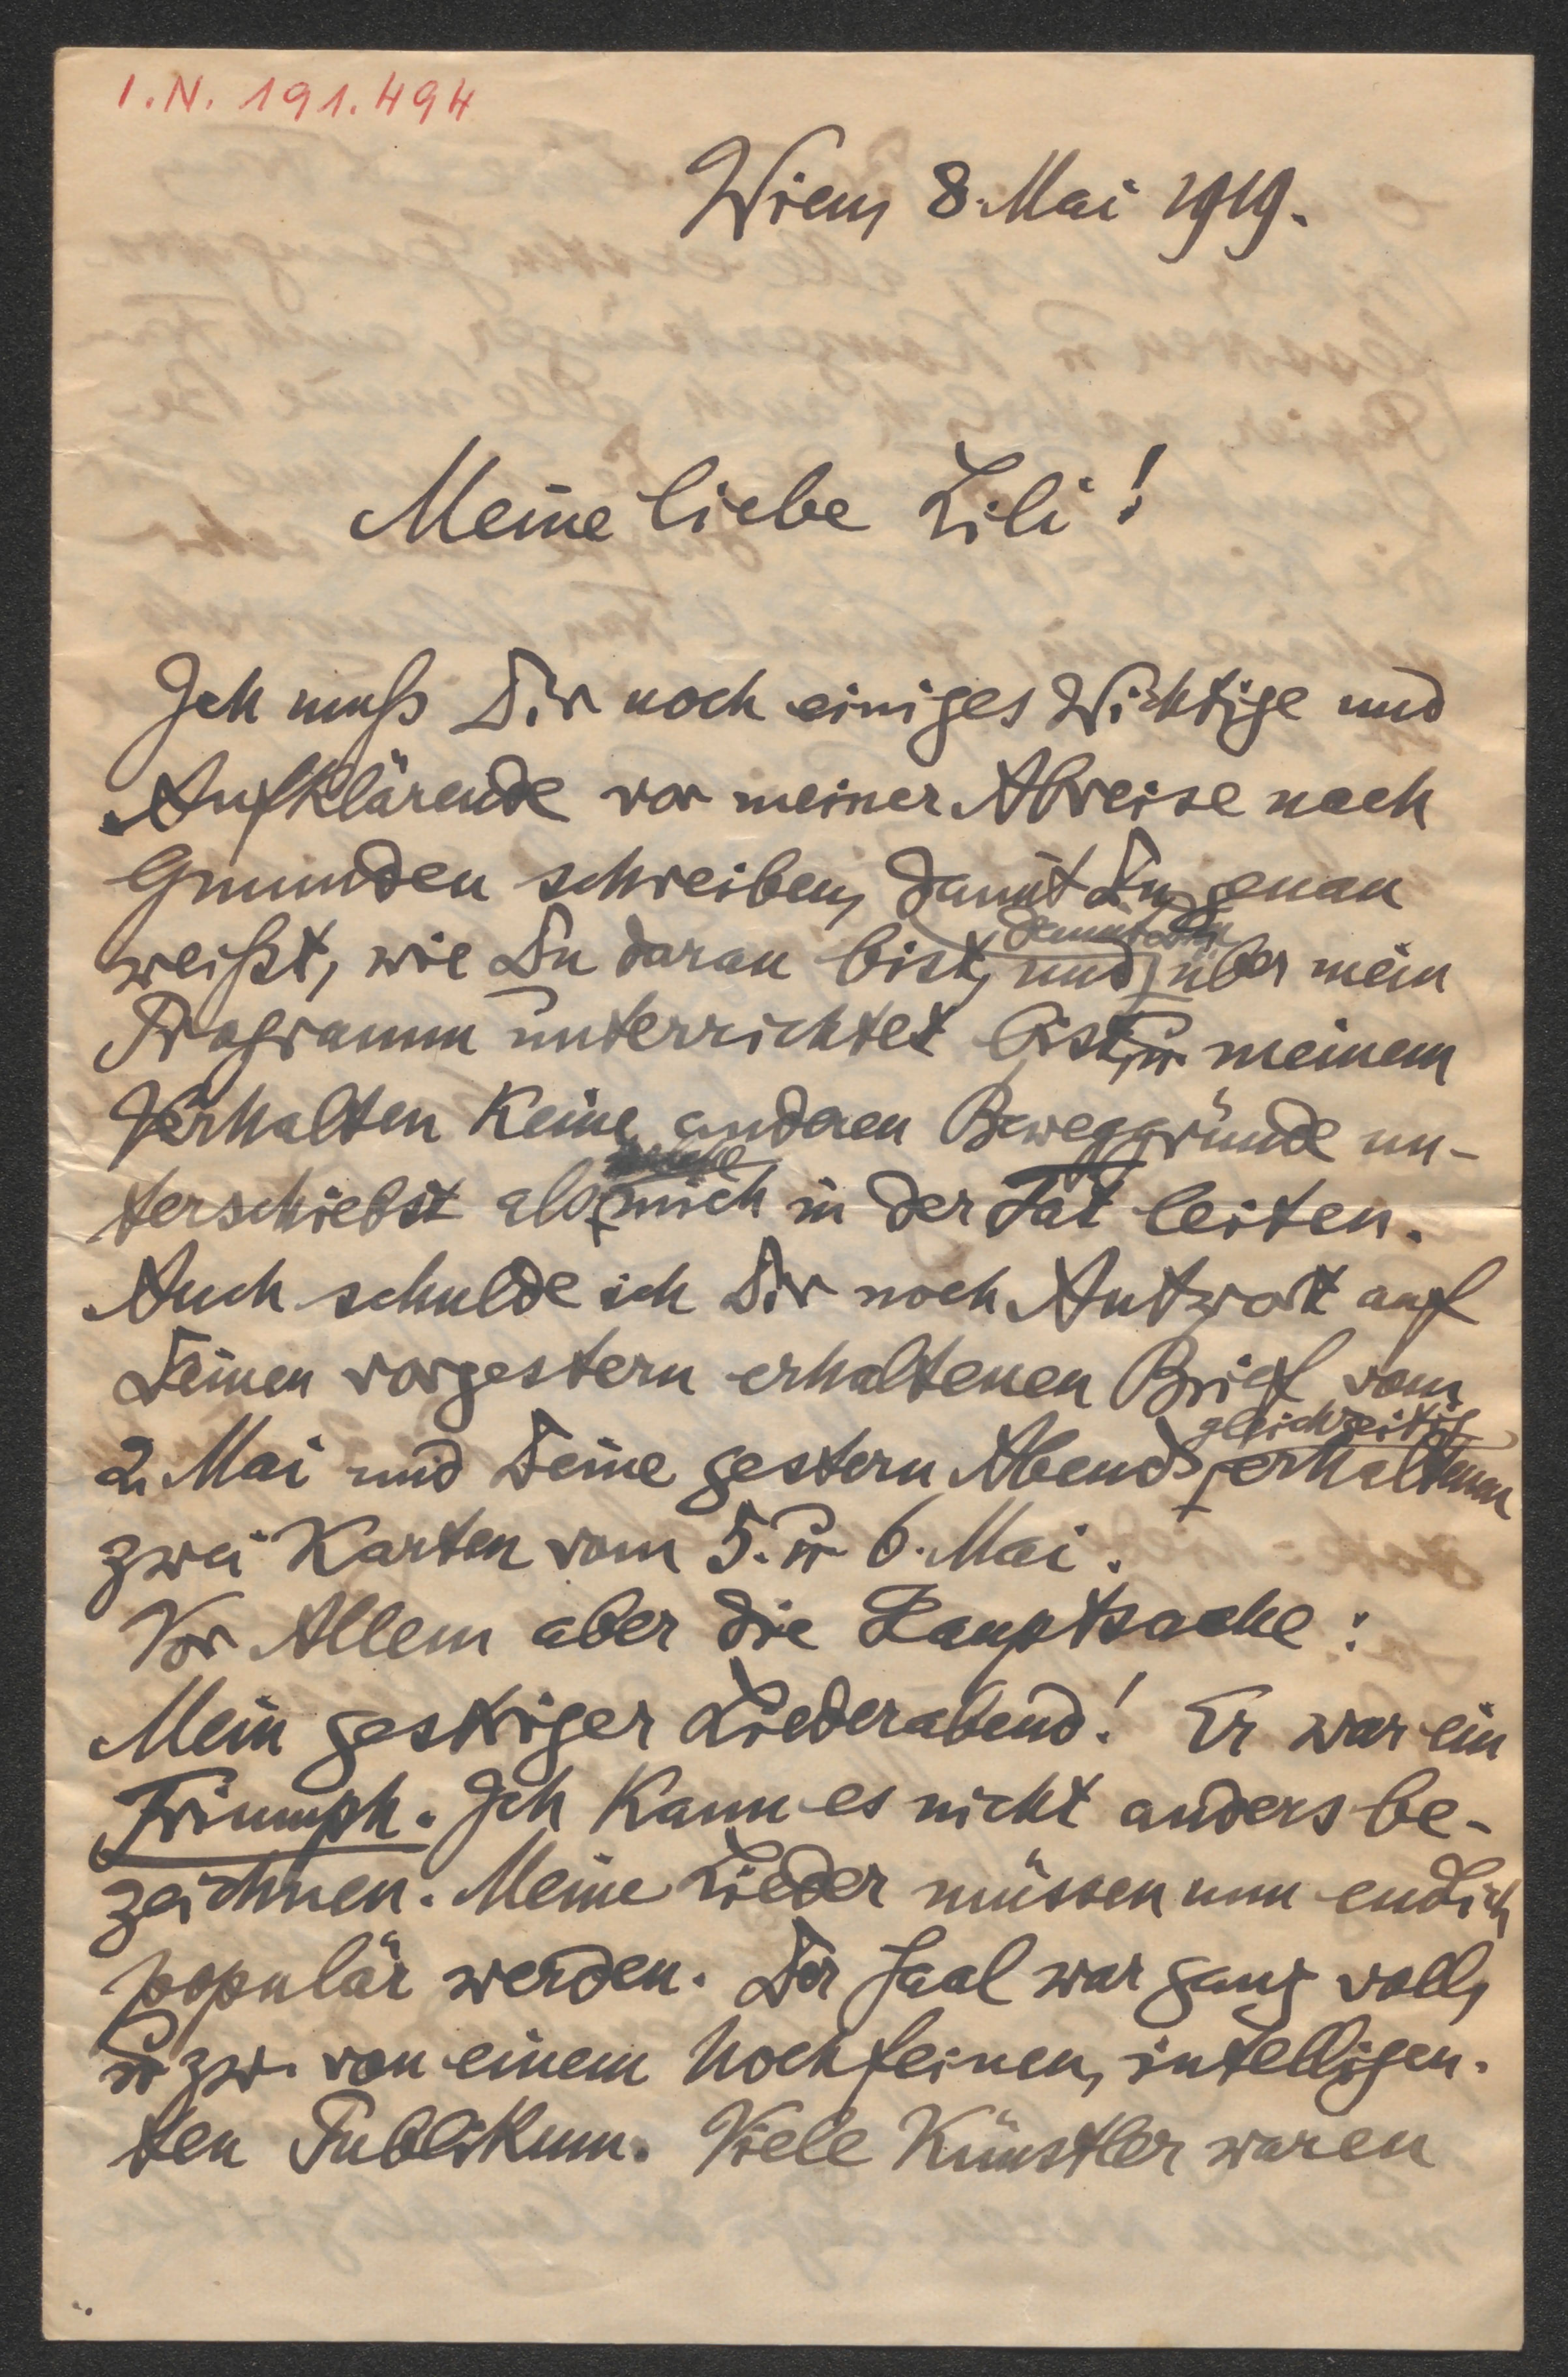 I.N. 191.494
Wien, 8. Mai 1919.
Meine liebe Lili!
Ich muß Dir noch einiges Wichtige und
Aufklärende vor meiner Abreise nach
Gmunden schreiben, damit Du genau
weißt, wie Du daran bist, und über mein
Programm unterrichtet bist, u. meinem
Verhalten keine anderen Beweggründe un-
terschiebst als mich in der Tat leiten.
Auch schulde ich Dir noch Antwort auf
Deinen vorgestern erhaltenen Brief vom
gleichzeitig
2. Mai und Deine gestern Abends erhaltenen
zwei Karten vom 5. u. 6. Mai.
Vor Allem aber die Hauptsache:
Mein gestriger Liederabend! Er war ein
Triumph. Ich kann es nicht anders be-
zeichnen. Meine Lieder müssen nun endlich
populär werden. Der Saal war ganz voll,
u. zw. von einem hochfeinen, intelligen-
ten Publikum. Viele Künstler waren